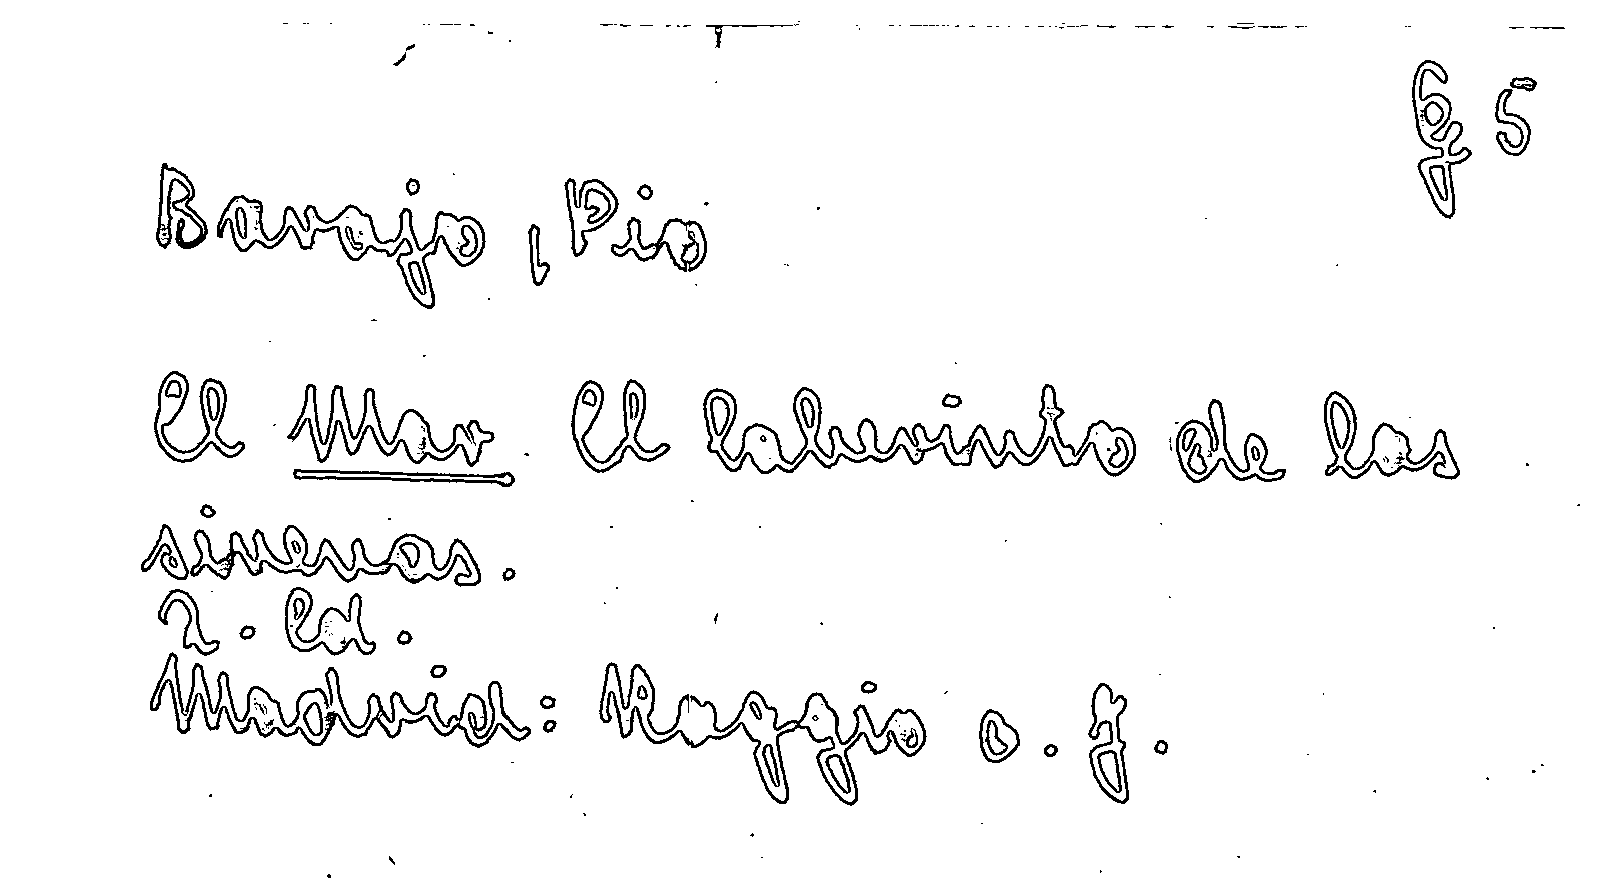 6j 5
Barojo, Pio
El Mar. El laberinto de las
sirenas.
2. ed.
Madrid: Raggio o. J.